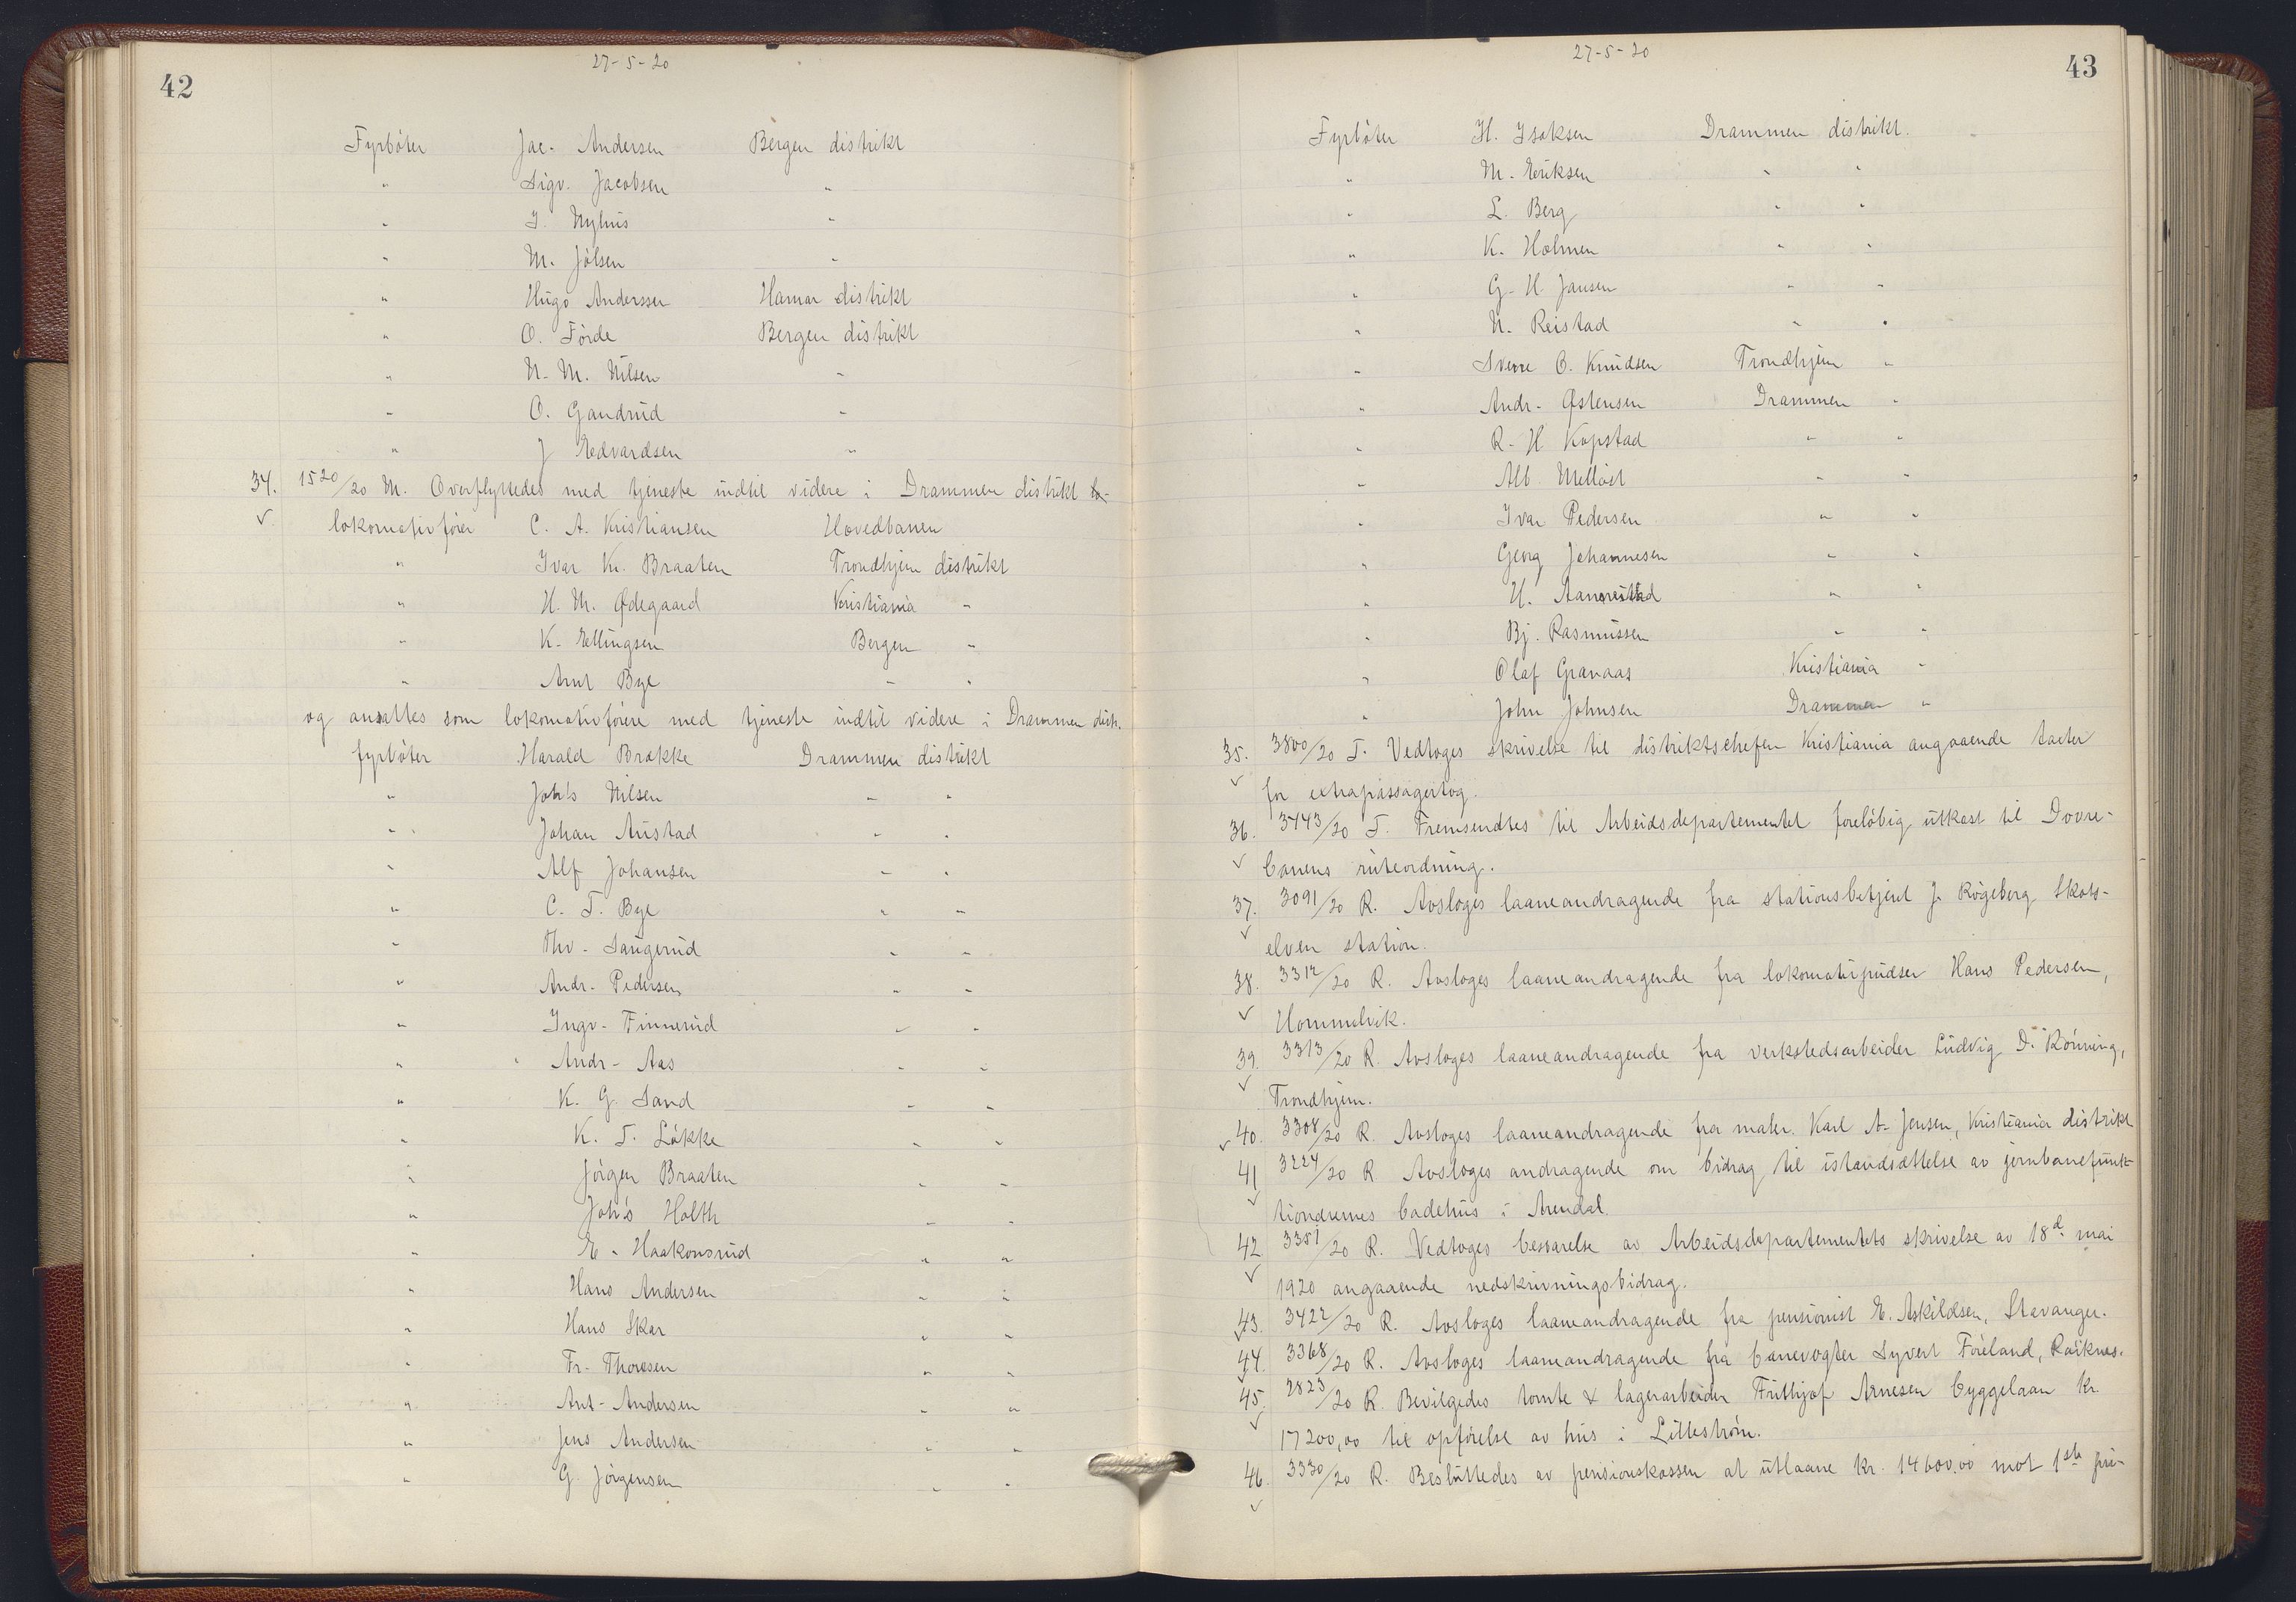 42
27-5-20
Fyrbøter Jac. Andersen Bergen distrikt
" Sigv. Jacobsen "
" I. Nyhus "
" M. Jølsen "
" Hugo Anderssen Hamar distrikt
" O. Førde Bergen distrikt
" N. M. Nilsen "
" O. Gandrud "
" J Edvardsen "
34. 1520/20 M. Overflyttedes med tjeneste indtil videre i Drammen distrikt
lokomotivfører C. A. Kristiansen Hovedbanen
" Ivar Kr. Braaten Trondhjem distrikt
" H. M. Ødegaard Kristiania "
" K. Ellingsen Bergen "
" Arnt Bye " "
og ansattes som lokomotivførere med tjeneste indtil videre i Drammen distr.
fyrbøter Harald Brække Drammen distrikt
" Joh's Nilsen " "
" Johan Austad " "
" Alf Johansen " "
" C. T. Bye " "
" Thv. Saugerud " "
" Andr. Pedersen " "
" Ingv. Finnerud " "
" Andr. Aas " "
" K. G. Sand " "
" K. T. Løkke " "
" Jørgen Braaten " "
" Joh's Holth " "
" E. Haakonsrud " "
" Hans Andersen " "
" Hans Skar " "
" Fr. Thoresen " "
" Ant. Andersen " "
" Jens Andersen " "
" G. Jørgensen " "
27-5-20
43
Fyrbøter H. Isaksen Drammen distrikt.
" M. Eriksen " "
" L. Berg " "
" K. Holmen " "
" G. H. Jansen " "
" N. Reistad " "
" Sverre O. Knudsen Trondhjem "
" Andr. Østensen Drammen "
" R. H. Kopstad " "
" Alb. " "
" Ivar Pedersen " "
" Georg Johannesen " "
" H. " "
" Bj. Rasmussen " "
" Olaf Granaas Kristiania "
" John Johnsen Drammen "
35. 3800/20 T. Vedtoges skrivelse til distriktschefen Kristiania angaaende taxter
for extrapassagertog.
36. 3443/20 T. Fremsendtes til Arbeidsdepartementet foreløbig utkast til Dovre-
banens ruteordning.
37. 3091/20 R. Avsloges laaneandragende fra stationsbetjent J. Røgeberg Skots-
elven station.
38. 3312/20 R. Avsloges laaneandragende fra lokomotivpudser Hans Pedersen,
Hommelvik.
39. 3313/20 R. Avsloges laaneandragende fra verkstedsarbeider Ludvig D. Rønning,
Trondhjem.
40. 3308/20 R. Avsloges laaneandragende fra maler Karl A. Jensen, Kristiania distrikt
41 3224/20 R Avsloges andragende om bidrag til istandsættelse av jernbanefunk-
tionærernes badehus i Arendal.
42 3351/20 R. Vedtoges besvarelse av Arbeidsdepartementets skrivelse av 18d. mai
1920 angaaende nedskrivningsbidrag.
43. 3422/20 R. Avsloges laaneandragende fra pensionist E. Askildsen, Stavanger.
44. 3368/20 R. Avsloges laaneandragende fra banevogter Syvert Føreland,
45. 2823/20 R. Bevilgedes tomte & lagerarbeider Frithjof Arnesen byggelaan kr.
17200,00 til opførelse av hus i Lillestrøm.
46. 3330/20 R. Besluttedes av pensionskassen at utlaane kr. 14600.00 mot 1ste pri-